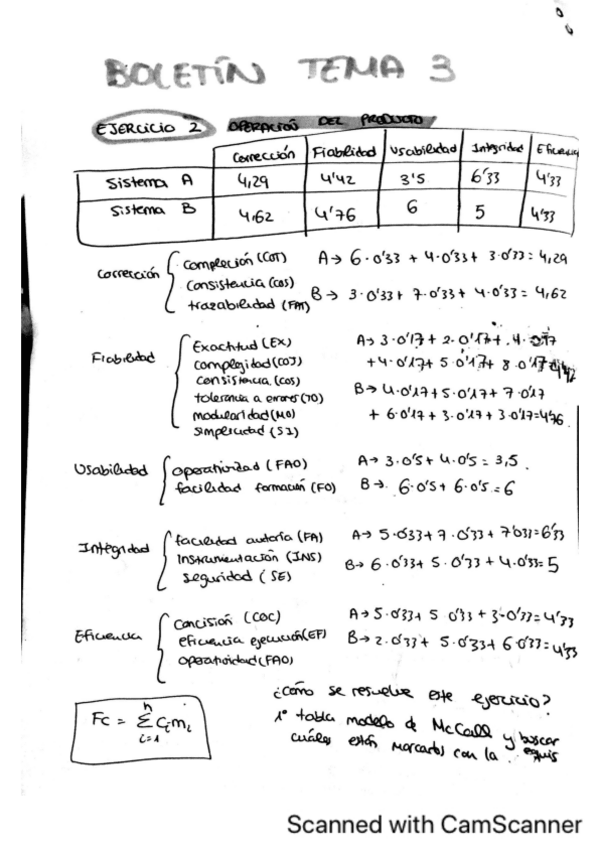 BOLETÍN TEMA 3
EJERCICIO 2 OPERACIÓN DEL PRODUCTO
Corrección Fiabilidad Usabilidad Integridad Eficiencia
Sistema A 4,29 4'42 3'5 6'33 4'33
Sistema B 4,62 4'76 6 5 4'33
corrección
compleción (COT) A→ 6·0'33 + 4·0'33 + 3·0'33 = 4,29
consistencia (COS)
trazabilidad (FAT) B→ 3·0'33 + 7·0'33 + 4·0'33 = 4,62
Fiabilidad
Exactitud (EX) A→ 3·0'17 + 2·0'17 + 4·0'17
complejidad (COJ) +4·0'17 + 5·0'17 + 8·0'17 = 4'42
consistencia (COS) B→ 4·0'17 + 5·0'17 + 7·0'17
tolerancia a errores (TO) + 6·0'17 + 3·0'17 + 3·0'17 = 4'76
modularidad (MO)
simplicidad (SI)
Usabilidad
operatividad (FAO) A→ 3·0'5 + 4·0'5 = 3,5
facilidad formación (FO) B→ 6·0'5 + 6·0'5 = 6
Integridad
facilidad autoría (FA) A→ 5·0'33 + 7·0'33 + 7·0'33 = 6'33
Instrumentación (INS) B→ 6·0'33 + 5·0'33 + 4·0'33 = 5
seguridad (SE)
Eficiencia
Concisión (COC) A→ 5·0'33 + 5·0'33 + 3·0'33 = 4'33
eficiencia ejecución (EF) B→ 2·0'33 + 5·0'33 + 6·0'33 = 4'33
operatividad (FAO)
Fc = n Σ i=1 Ci mi
¿Cómo se resuelve este ejercicio?
1º tabla modelo de McCall y buscar
cuáles están marcados con la equis
Scanned with CamScanner